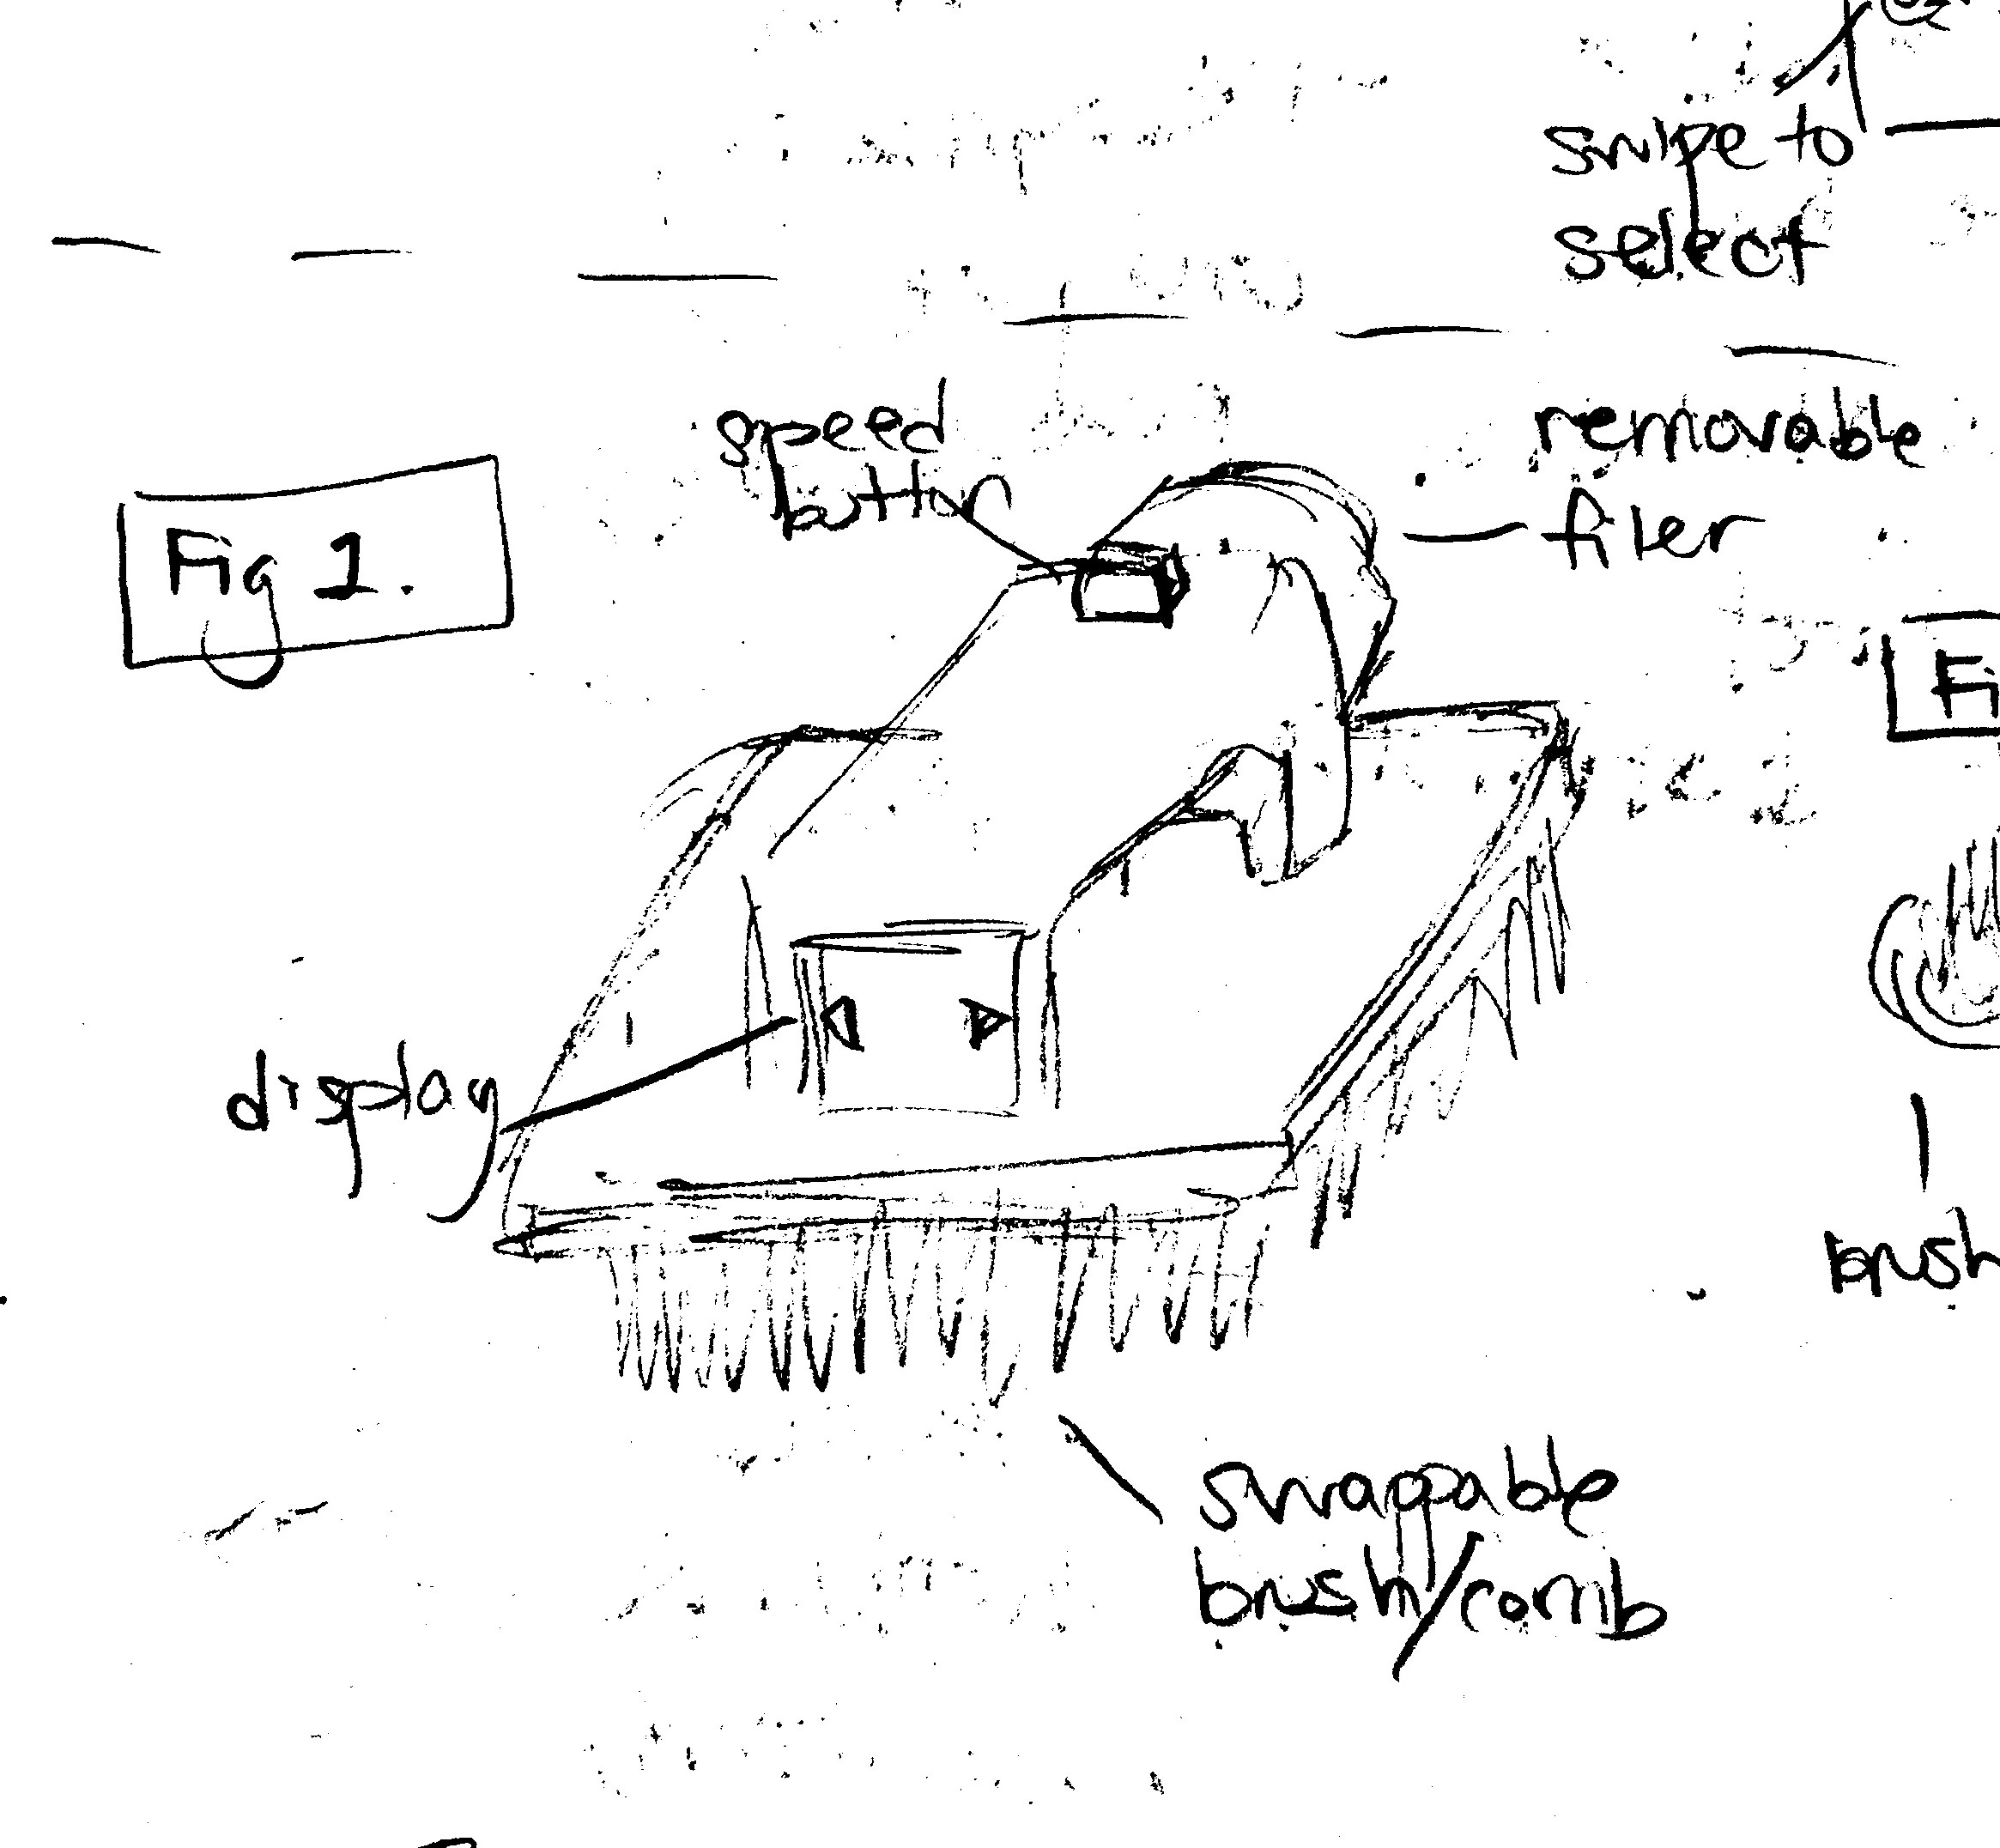 swipe to
select
speed
button
removable
filer
Fig 1.
Fi
display
brush
swappable
brush/comb